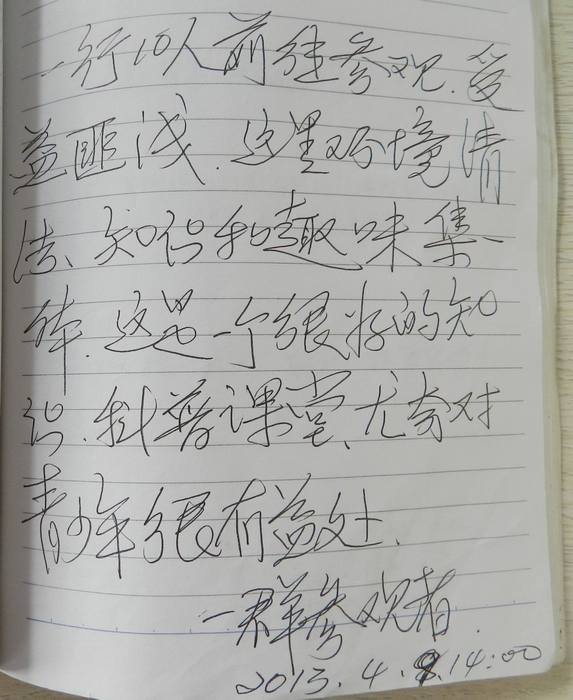 一行10人前往参观.受
益匪浅.这里环境清
洁、知识和趣味集一
体.这是一个很好的知
识.科普课堂、尤奇对
青少年很有益处.
一群参观者.
2013.4.8.14:00